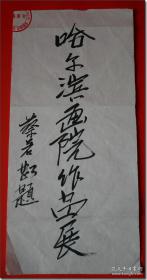 哈尔滨画院作品展
蔡若虹题